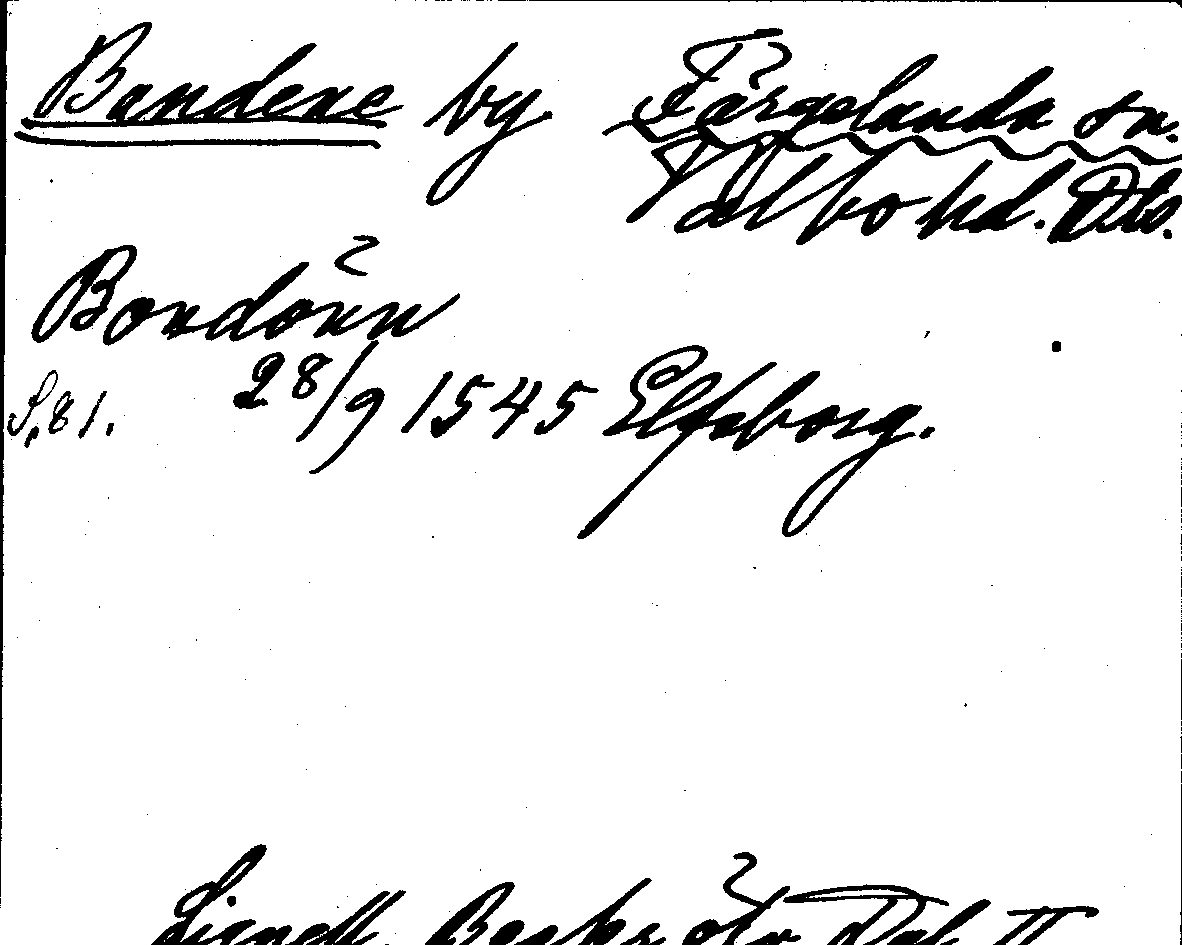 Bandene by. Färgelanda sn.
Valbo hd. Dls.
Bondönn
S.81. 28/9 1545 Elfsborg.
Lignell, Beskr. öfv. Dal II